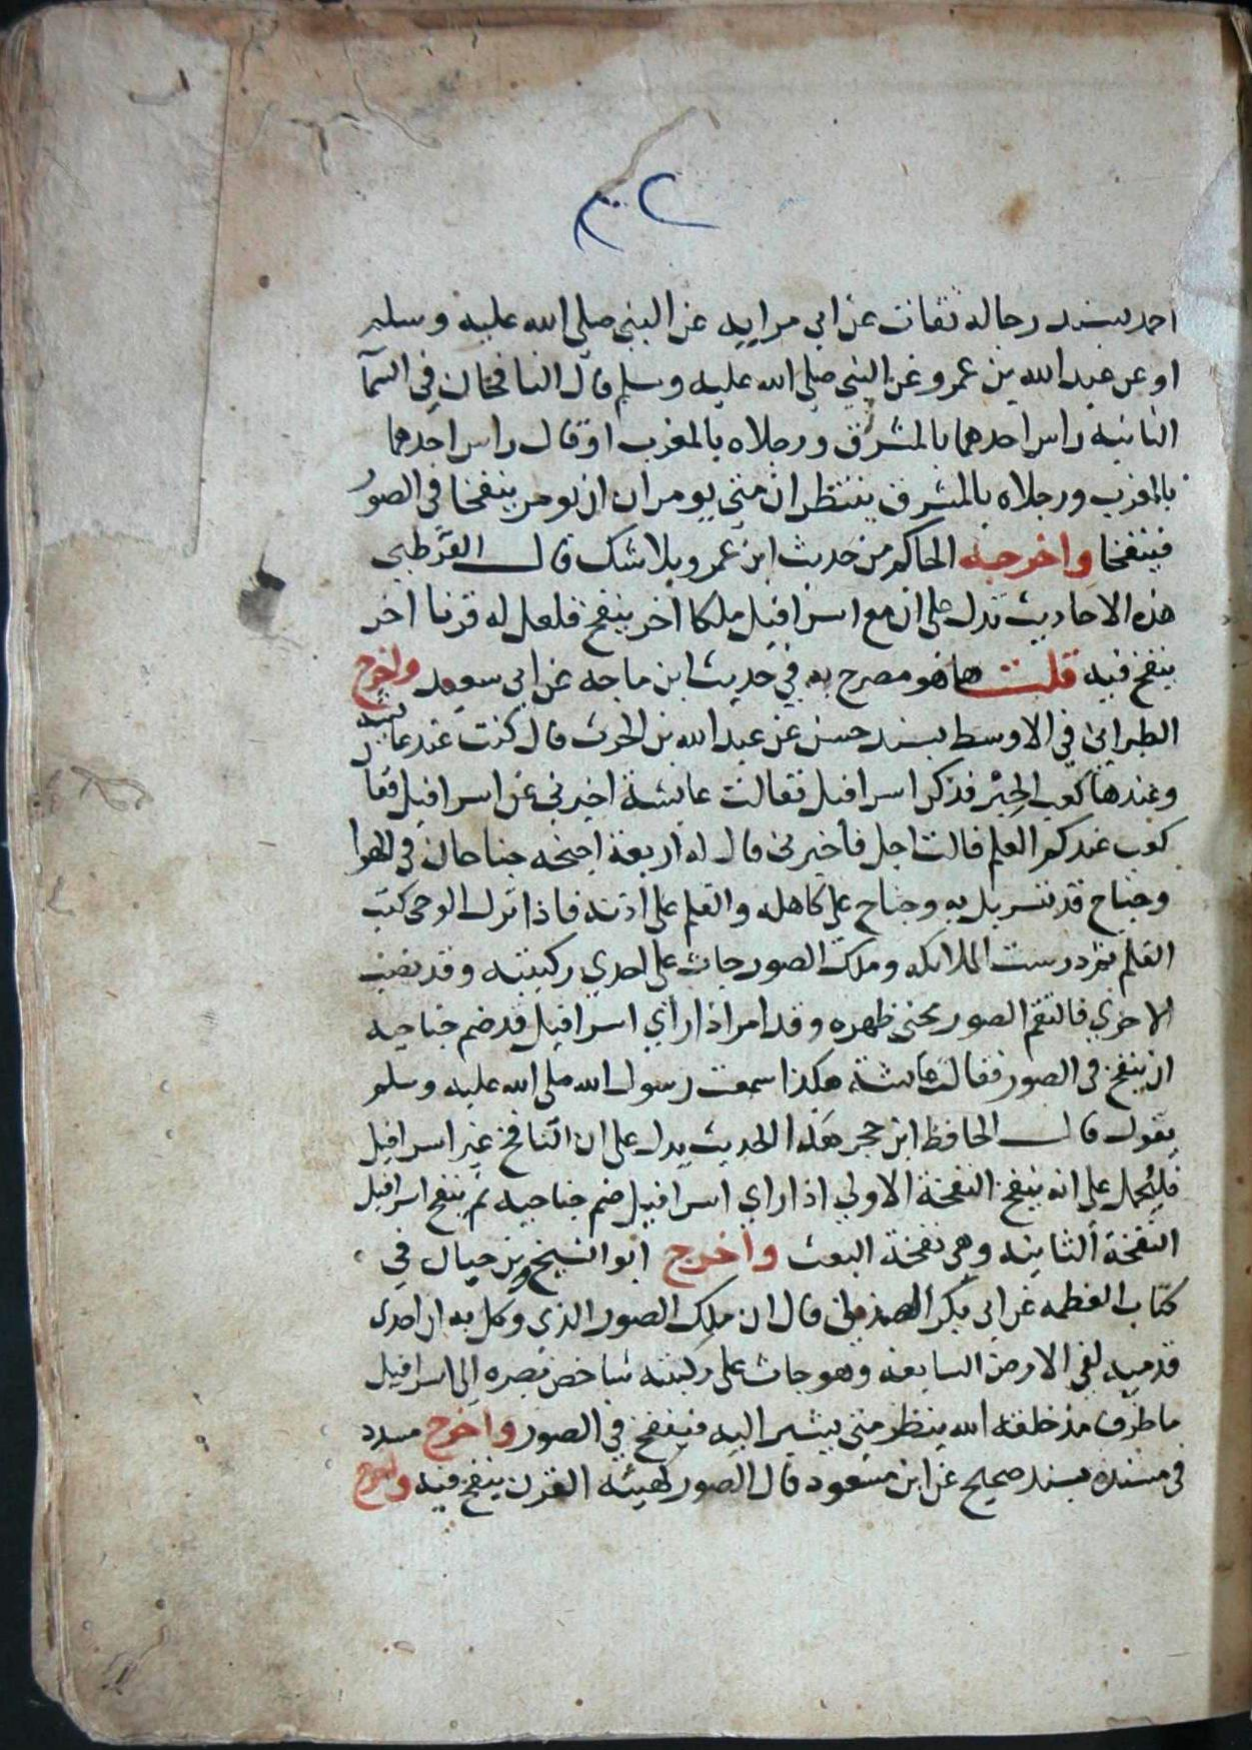 احمد بسند رجاله ثقات عن ابي مرايه عن النبي صلى الله عليه وسلم
او عن عبد الله بن عمرو عن النبي صلى الله عليه وسلم قال النافخان في السمآ
الثانيه راس احدهما بالمشرق ورجلاه بالمغرب او قال راس احدهما
بالمغرب ورجلاه بالمشرق ينتظران متى يومران ان ينفخا في الصور
فينفخا واخرجه الحاكم من حديث ابن عمرو بلا شك قال القرطبي
هذه الاحاديث تدل على ان مع اسرافيل ملكا اخر ينفخ فلعل له قرنا اخر
ينفخ فيه قلت هاهو مصرح به في حديث ابن ماجه عن ابي سعيد واخرج
الطبراني في الاوسط بسند حسن عن عبد الله بن الحرث قال كنت عند عايشه
وعندها كعب الحبر فذكر اسرافيل فقالت عايشة اخبرني عن اسرافيل فقا
كعب عندكم العلم قالت اجل فأخبرني قال له اربعة اجنحه جناحان في الهوا
وجناح قد تسربل به وجناح على كاهله والقلم على اذنه فاذا نزل الوحي كتب
القلم ثم درست الملايكه وملك الصور جاث على احدى ركبتيه وقد نصب
الاخرى فالتقم الصور محنى ظهره وقد امر اذا راى اسرافيل قد ضم جناحيه
ان ينفخ في الصور فقالت عائشة هكذا سمعت رسول الله صلى الله عليه وسلم
يقول قال الحافظ ابن حجر هذا الحديث يدل على ان النافخ غير اسرافيل
فليحمل على انه ينفخ النفخة الاولى اذا راى اسرافيل ضم جناحيه ثم ينفخ اسرافيل
النفخة الثانيه وهي نفخة البعث واخرج ابو الشيخ بن حيان في
كتاب العظمه عن ابي بكر الهذلي قال ان ملك الصور الذي وكل به ان احدى
قدميه لفي الارض السابعه وهو جاث على ركبتيه شاخص بصره الى اسرافيل
ما طرف مذ خلقه الله ينظر متى يشير اليه فينفخ في الصور واخرج مسدد
في مسنده بسند صحيح عن ابن مسعود قال الصور كهيئه القرن ينفخ فيه واخرج